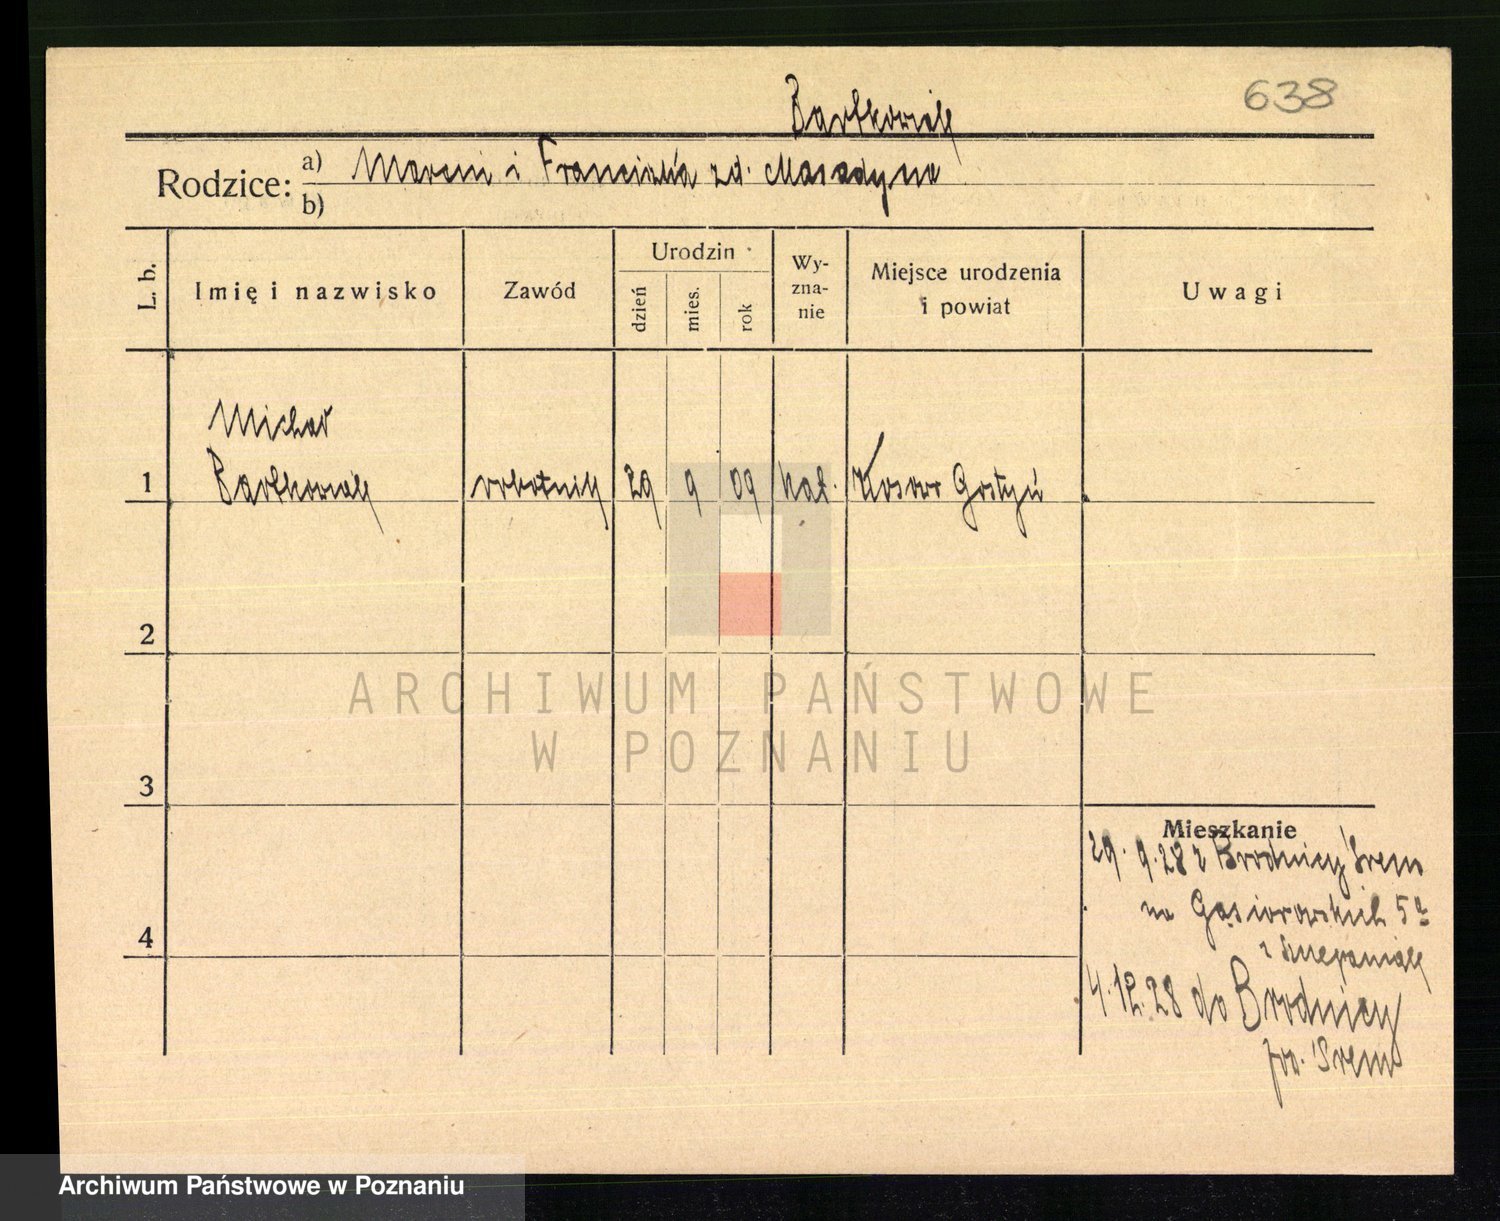 638
Bartkowiak
Rodzice: a) Marcin i Franciszka zd.
b)
L. b.
Imię i nazwisko
Zawód
Urodzin
dzień
mies.
rok
Wy-
zna-
nie
Miejsce urodzenia
i powiat
Uwagi
Michał
1 Bartkowiak robotnik 29 9 09 kat. Kosowo Gostyń
2
3
4
Mieszkanie
29. 9. 28 z Brodnicy Śrem
na Gąsiorowskich 5
4. 12. 28 do Brodnicy
pow. Śrem
ARCHIWUM PAŃSTWOWE
W POZNANIU
Archiwum Państwowe w Poznaniu